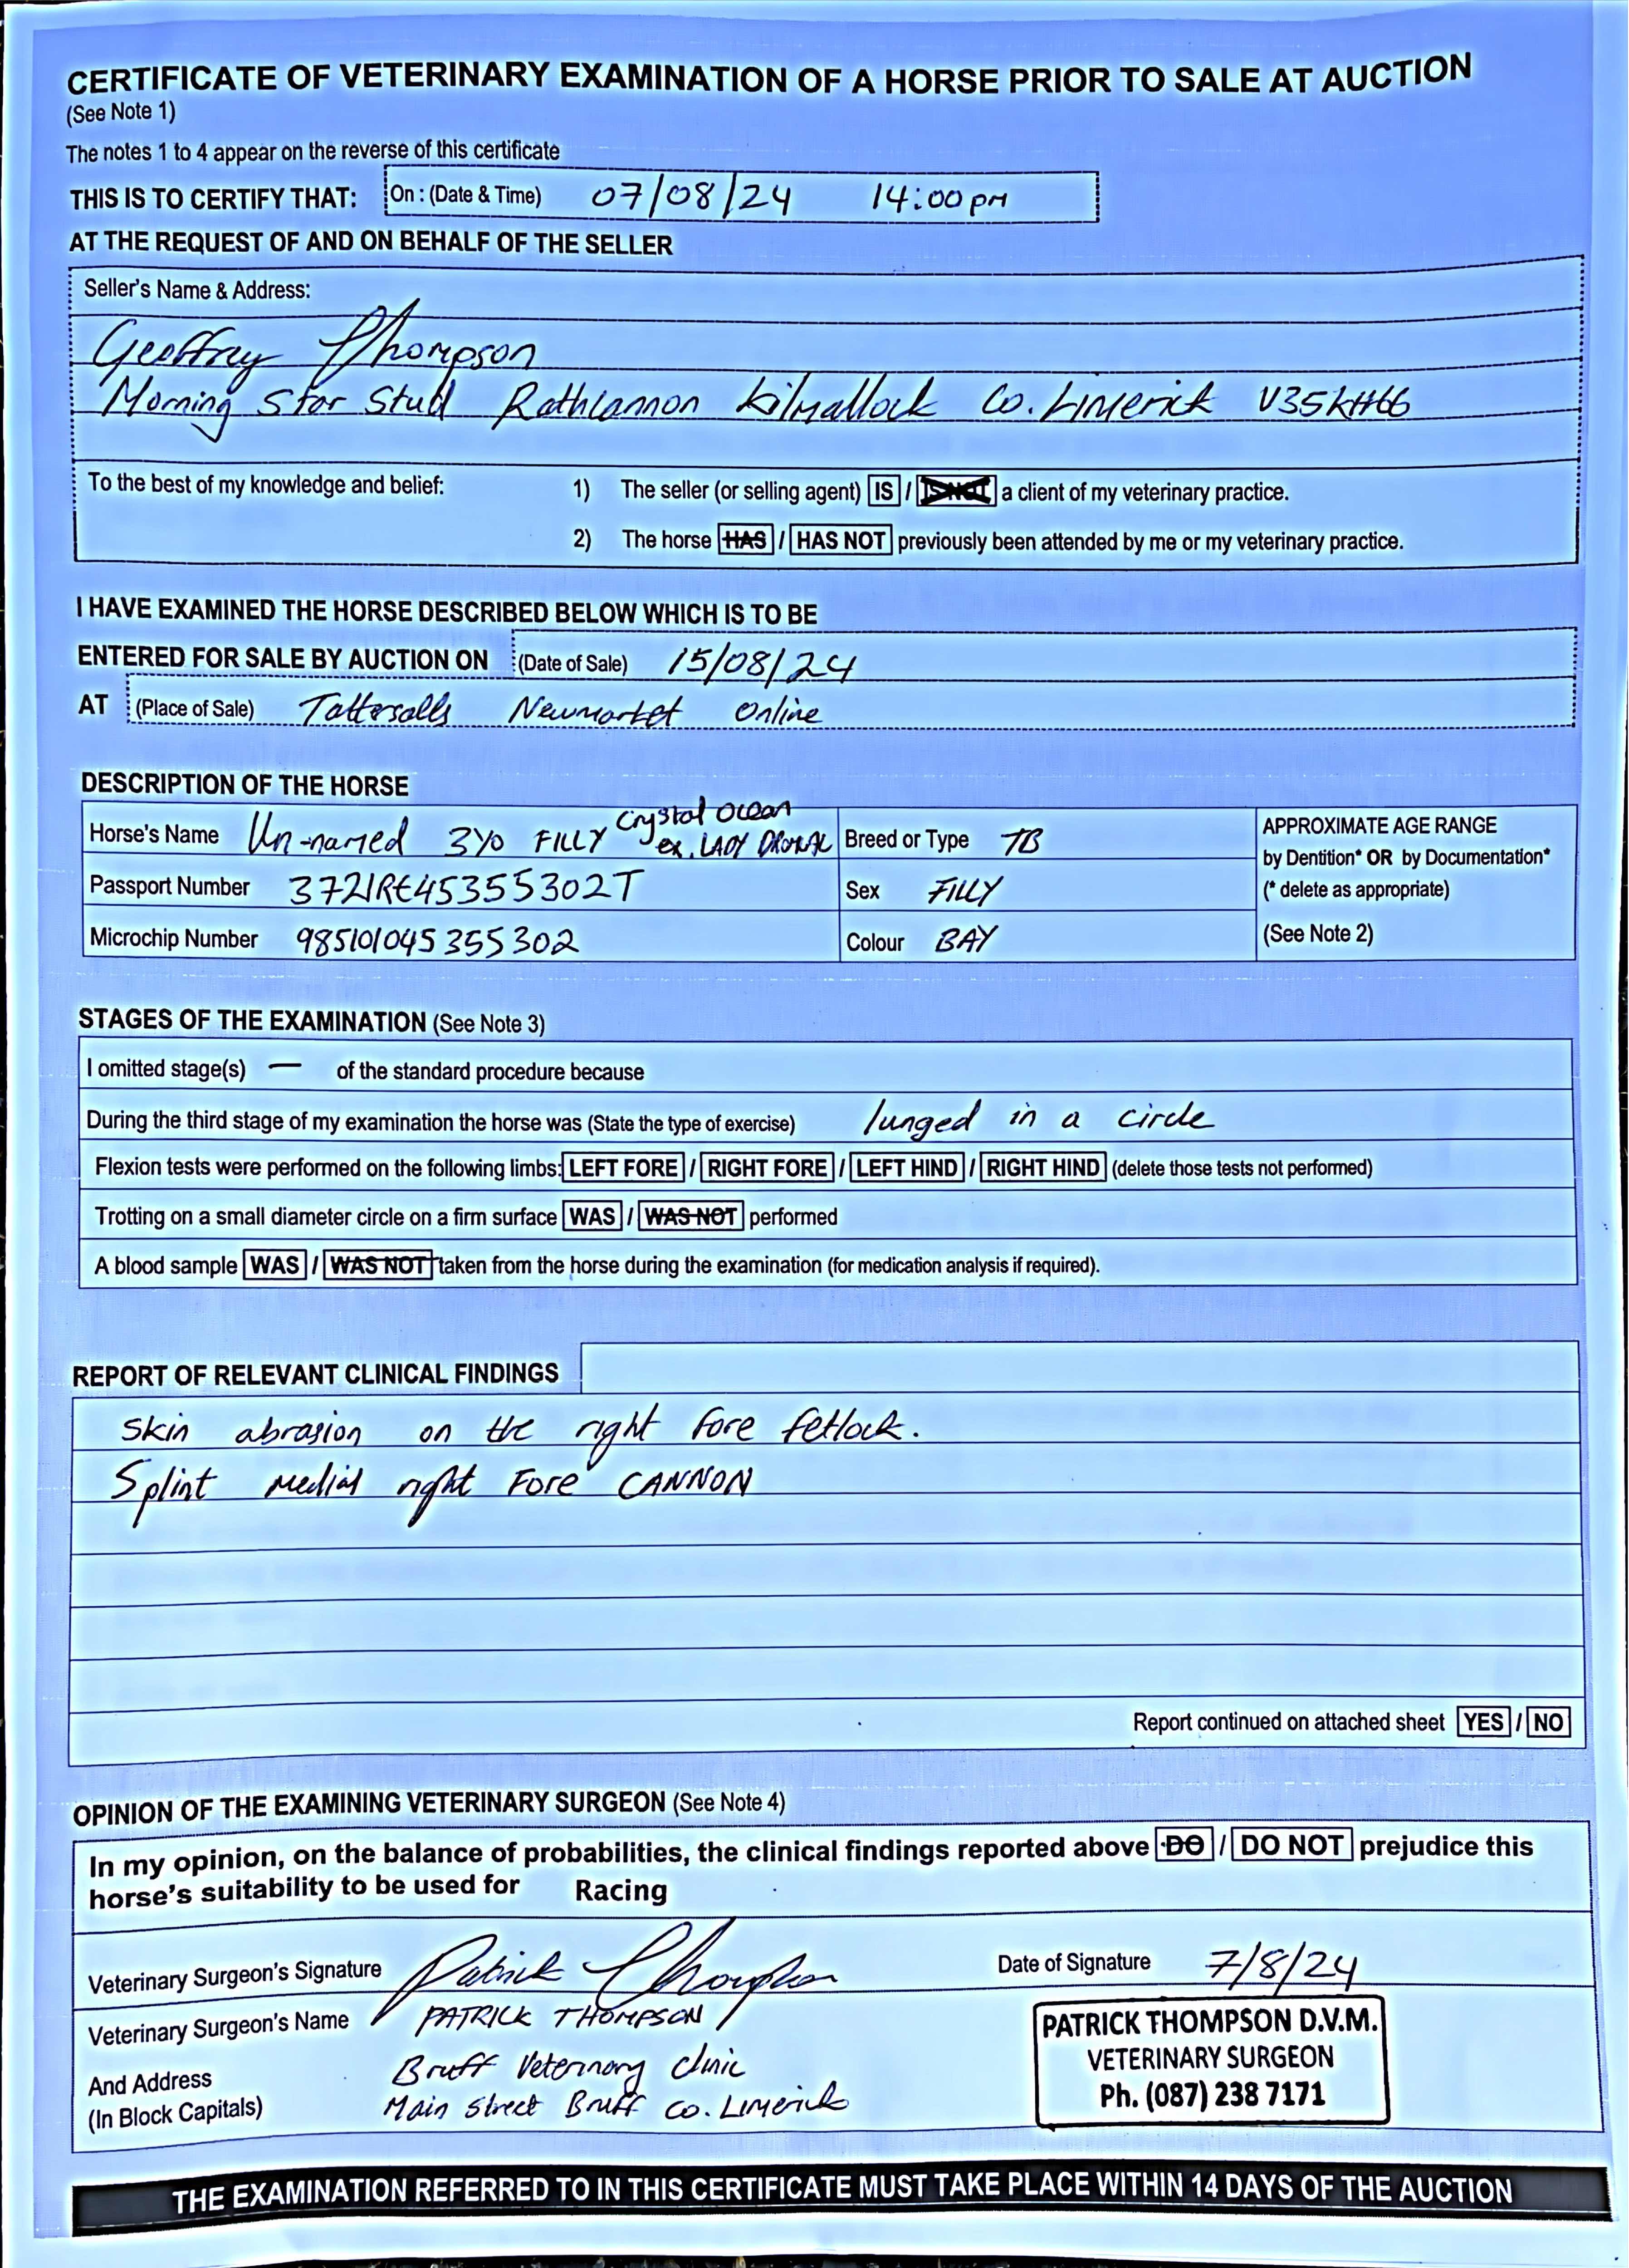 CERTIFICATE OF VETERINARY EXAMINATION OF A HORSE PRIOR TO SALE AT AUCTION
(See Note 1)
The notes 1 to 4 appear on the reverse of this certificate
THIS IS TO CERTIFY THAT: On : (Date & Time) 07/08/24 14:00pm
AT THE REQUEST OF AND ON BEHALF OF THE SELLER
Seller's Name & Address:
Geoffrey Thompson
Morning Star Stud Rathcannon Kilmallock Co. Limerick V35KH66
To the best of my knowledge and belief: 1) The seller (or selling agent) IS / IS NOT a client of my veterinary practice.
2) The horse HAS / HAS NOT previously been attended by me or my veterinary practice.
I HAVE EXAMINED THE HORSE DESCRIBED BELOW WHICH IS TO BE
ENTERED FOR SALE BY AUCTION ON (Date of Sale) 15/08/24
AT (Place of Sale) Tattersalls Newmarket Online
DESCRIPTION OF THE HORSE
Horse's Name Un-named 3yo FILLY Crystal Ocean ex. LADY Breed or Type TB
Passport Number 372IRE45355302T Sex FILLY
Microchip Number 985101045355302 Colour BAY
APPROXIMATE AGE RANGE
by Dentition* OR by Documentation*
(* delete as appropriate)
(See Note 2)
STAGES OF THE EXAMINATION (See Note 3)
I omitted stage(s) — of the standard procedure because
During the third stage of my examination the horse was (State the type of exercise) lunged in a circle
Flexion tests were performed on the following limbs: LEFT FORE / RIGHT FORE / LEFT HIND / RIGHT HIND (delete those tests not performed)
Trotting on a small diameter circle on a firm surface WAS / WAS NOT performed
A blood sample WAS / WAS NOT taken from the horse during the examination (for medication analysis if required).
REPORT OF RELEVANT CLINICAL FINDINGS
Skin abrasion on the right fore fetlock.
Splint medial right Fore CANNON
Report continued on attached sheet YES / NO
OPINION OF THE EXAMINING VETERINARY SURGEON (See Note 4)
In my opinion, on the balance of probabilities, the clinical findings reported above DO / DO NOT prejudice this
horse's suitability to be used for Racing
Veterinary Surgeon's Signature Patrick Thompson Date of Signature 7/8/24
Veterinary Surgeon's Name PATRICK THOMPSON
And Address Bruff Veterinary Clinic
(In Block Capitals) Main Street Bruff Co. Limerick
PATRICK THOMPSON D.V.M.
VETERINARY SURGEON
Ph. (087) 238 7171
THE EXAMINATION REFERRED TO IN THIS CERTIFICATE MUST TAKE PLACE WITHIN 14 DAYS OF THE AUCTION